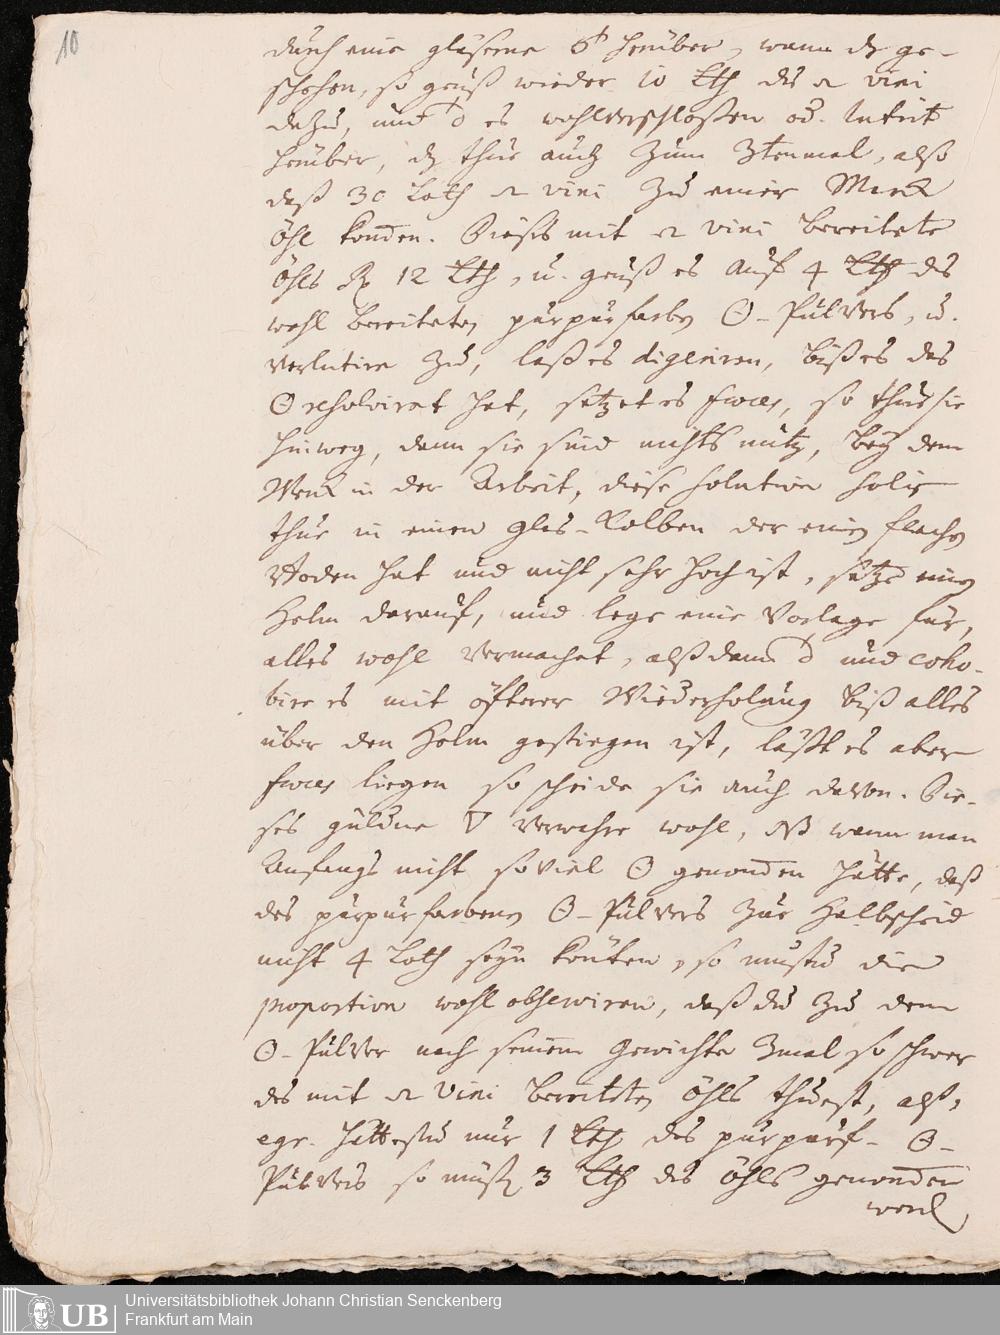 10
durch eine gläserne herüber, wann dz ge-
schehen, so geuß wieder 10 Lth des vini
dazu, und es wohlverschloßen od. lutirt
herüber, dz thue auch zum 3tenmal, alß
daß 30 Loth vini zu einer Marck
Öhl kommen. Dießes mit vini bereitete
Öhls 12 Lth, u. geuß es auf 4 Lth des
wohl bereiteten purpurfarben ☉-Pulvers, u.
verlutire zu, laß es digeriren, biß es das
☉ resolvirt hat, setzet es fæces, so thue sie
hinweg, dann sie sind nichts nütz, bey dem
Werck in der Arbeit, diese solution solis
thue in einen Glas-Kolben der einen flachen
Boden hat und nicht sehr hoch ist, setze einen
Helm darauf, und lege eine Vorlage für,
alles wohl vermachet, alßdann und coho-
bire es mit öfterer Wiederholung biß alles
über den Helm gestiegen ist, läßt es aber
fæces liegen so scheide sie auch davon. Die-
ses güldne ▽ verwahre wohl, wann man
Anfangs nicht soviel ☉ genommen hätte, daß
des purpurfarbenen ☉-Pulvers zur Halbscheid
nicht 4 Loth seyn könten, so mustu die
proportion wohl observiren, daß du zu dem
☉-Pulver nach seinem Gewichte 3mal so schwer
des mit vini bereiteten Öhls thuest, alß,
egr. hättestu nur 1 Lth des purpurf- ☉-
Pulvers so müßen 3 Lth des Öhls genommen
werden
UB
Universitätsbibliothek Johann Christian Senckenberg
Frankfurt am Main